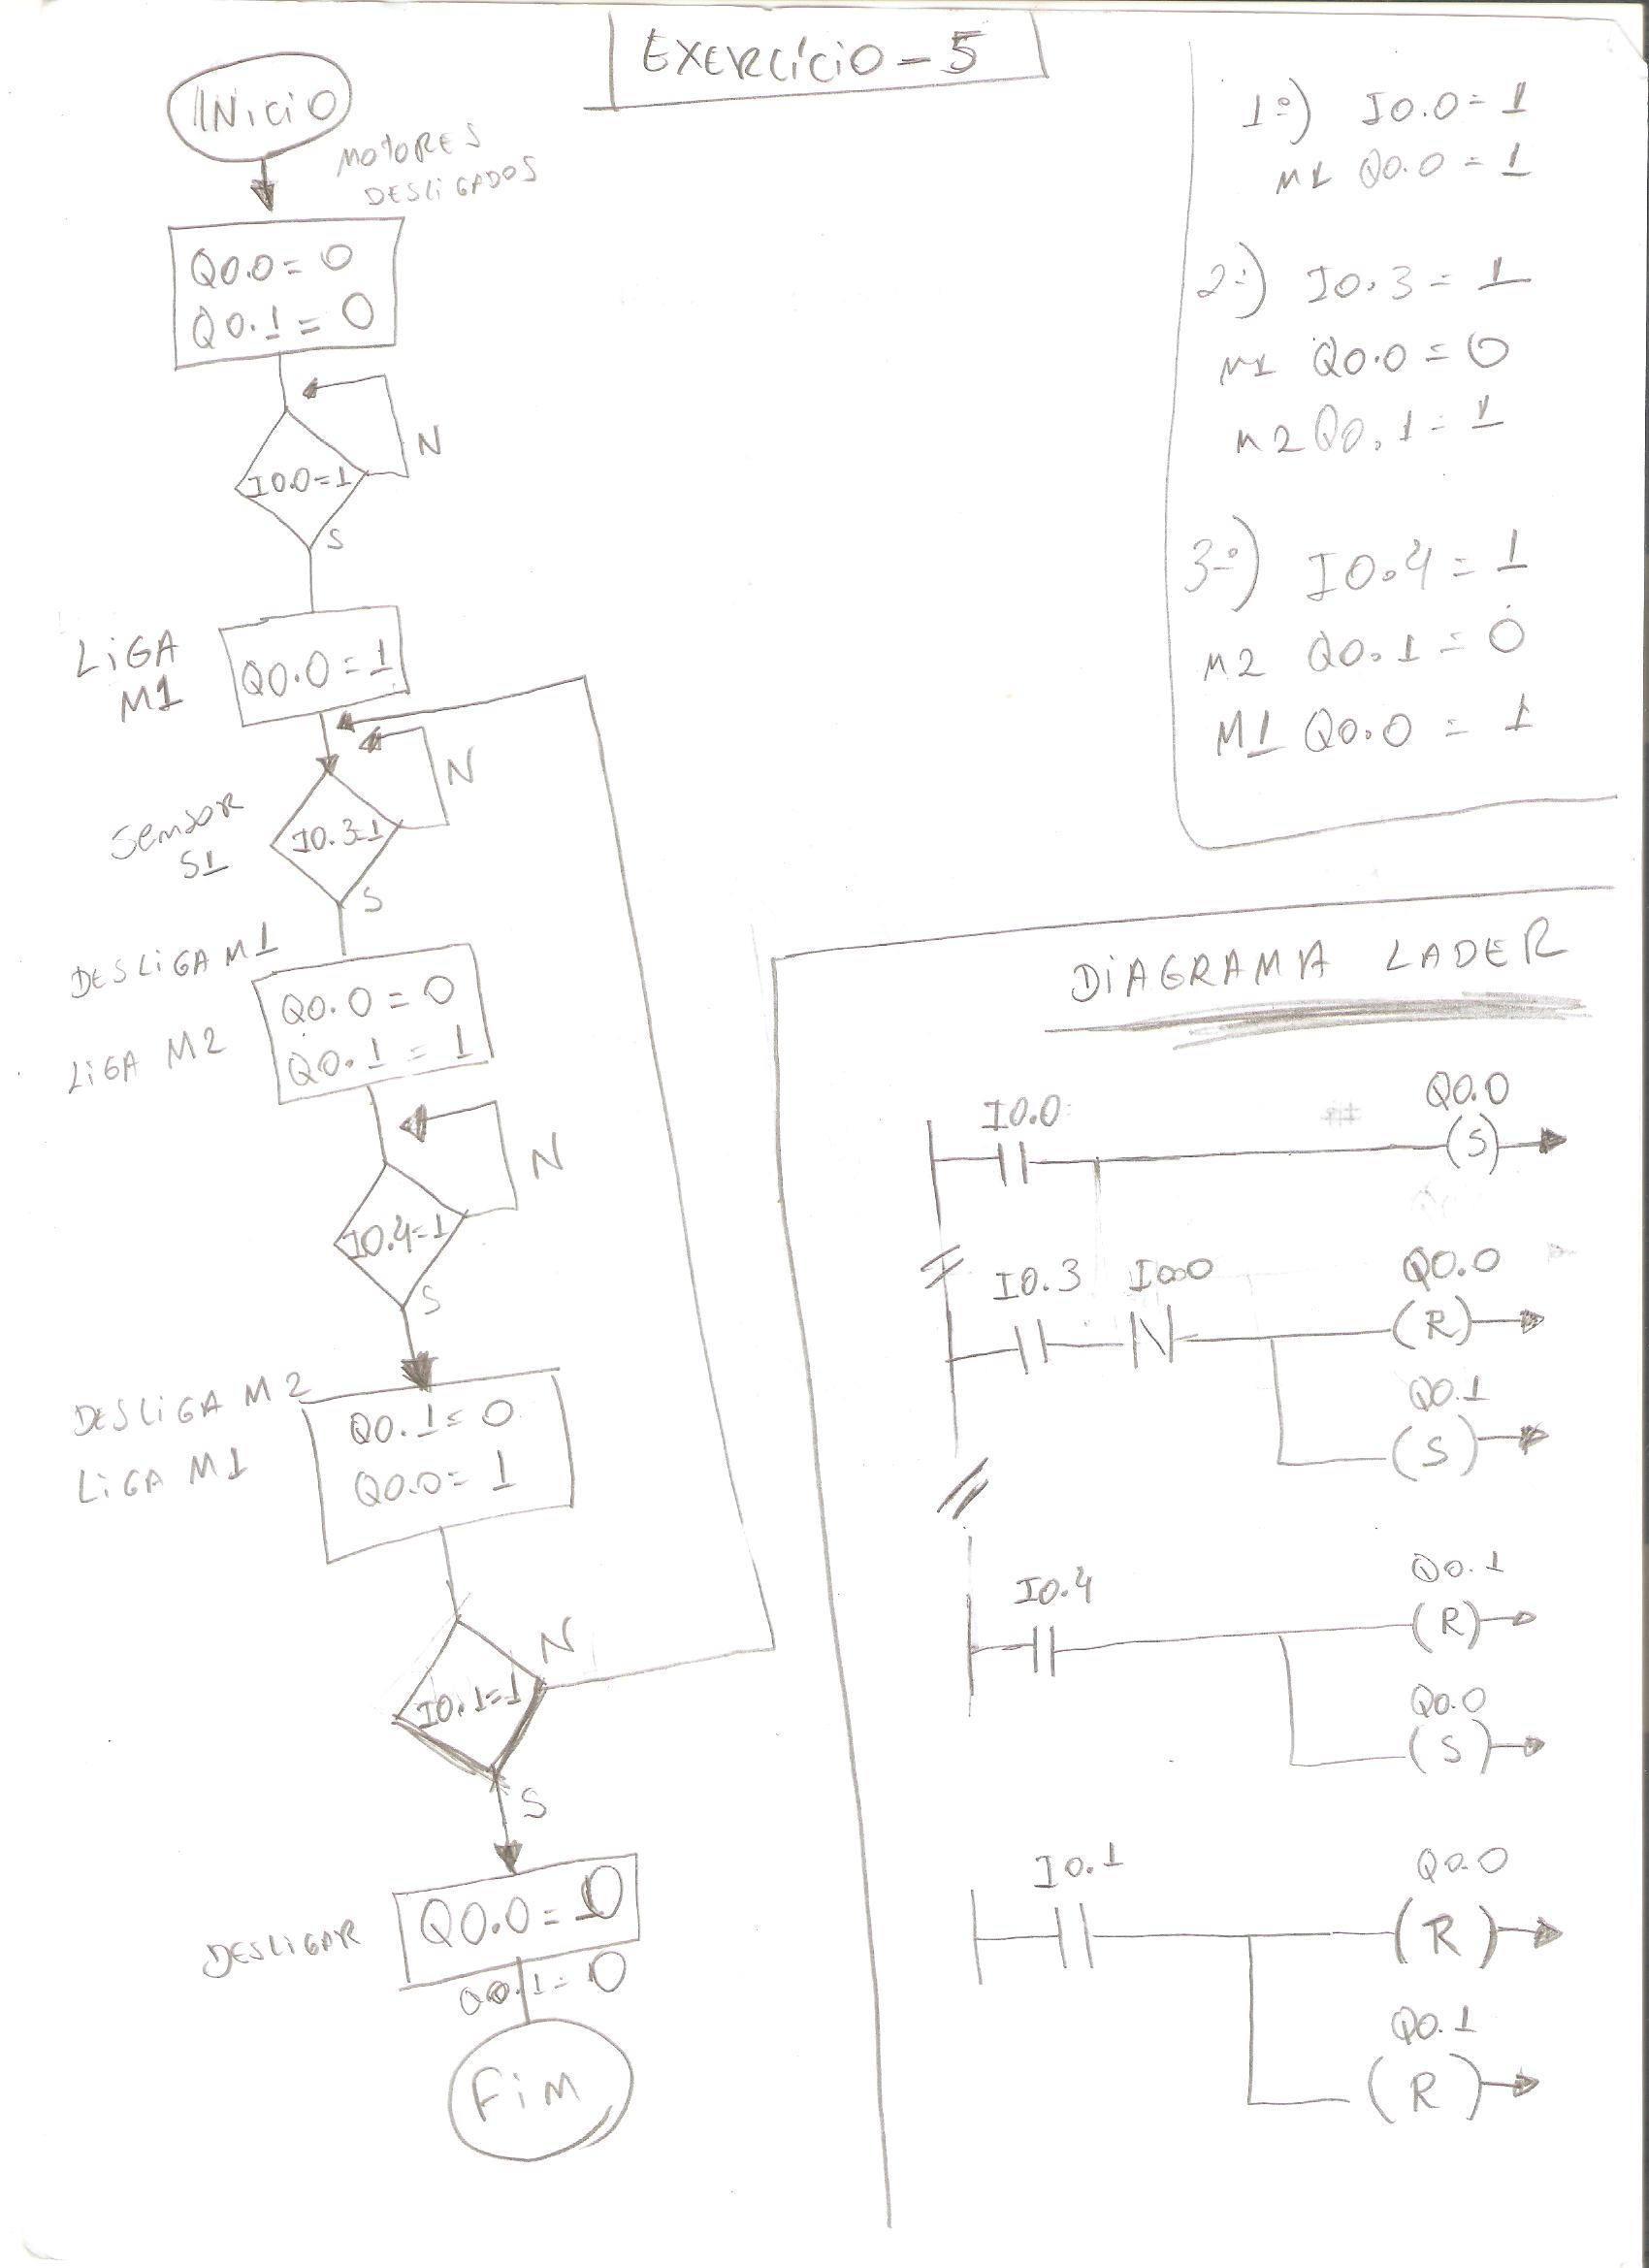 EXERCÍCIO - 5
INICIO
MOTORES
DESLIGADOS
Q0.0 = 0
Q0.1 = 0
I0.0=1
N
S
LIGA
M1
Q0.0 = 1
N
SENSOR
S1
I0.3=1
S
DESLIGA M1
LIGA M2
Q0.0 = 0
Q0.1 = 1
N
I0.4=1
S
DESLIGA M2
LIGA M1
Q0.1 = 0
Q0.0 = 1
N
I0.1=1
S
DESLIGAR
Q0.0 = 0
Q0.1 = 0
FIM
1º) I0.0 = 1
M1 Q0.0 = 1
2º) I0.3 = 1
M1 Q0.0 = 0
M2 Q0.1 = 1
3º) I0.4 = 1
M2 Q0.1 = 0
M1 Q0.0 = 1
DIAGRAMA LADER
I0.0 Q0.0
(S)
I0.3 I0.0 Q0.0
(R)
Q0.1
(S)
I0.4 Q0.1
(R)
Q0.0
(S)
I0.1 Q0.0
(R)
Q0.1
(R)